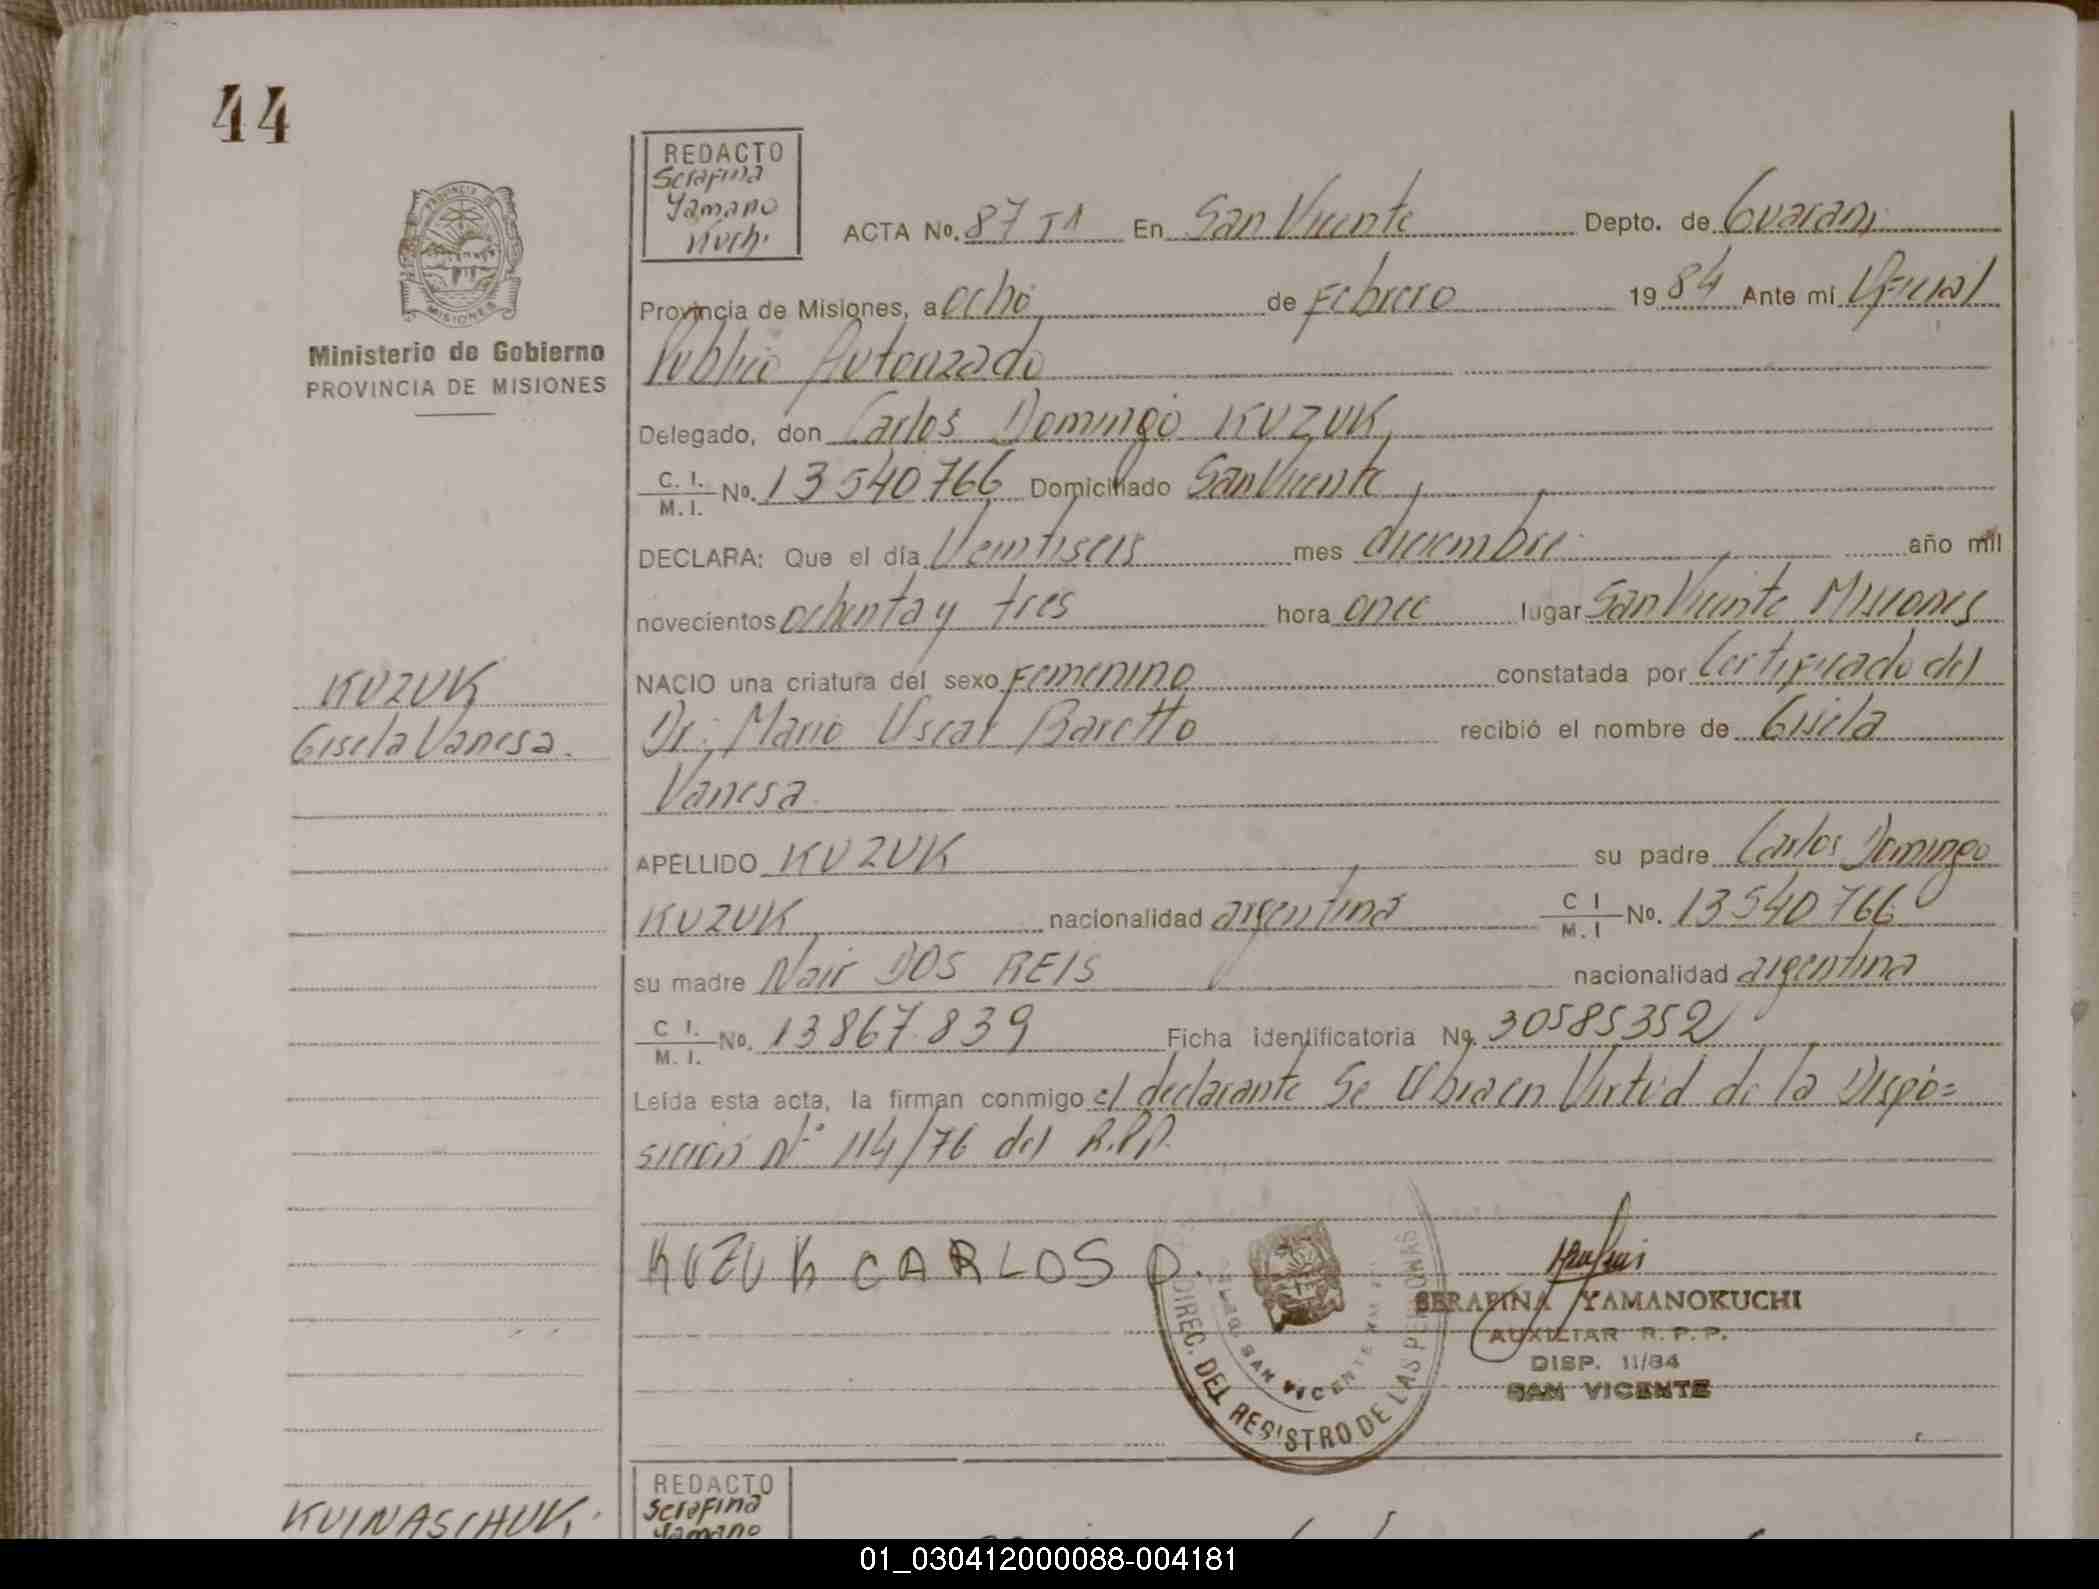 44
REDACTO
Serafina
Yamano
Kuchi
ACTA No. 87 T1 En San Vicente Depto. de Guaraní
Provincia de Misiones, a ocho de Febrero 1984 Ante mí Oficial
Publico Autorizado
Ministerio de Gobierno
PROVINCIA DE MISIONES
Delegado, don Carlos Domingo KUZUK
C. I. M. I. No. 13540766 Domiciliado San Vicente
DECLARA: Que el día Veintiseis mes diciembre año mil
novecientos ochenta y tres hora once lugar San Vicente Misiones
KUZUK
Gisela Vanesa.
NACIO una criatura del sexo Femenino constatada por Certificado del
Dr. Mario Oscar Baretto recibió el nombre de Gisela
Vanesa
APELLIDO KUZUK su padre Carlos Domingo
KUZUK nacionalidad argentina C I M. I No. 13540766
su madre Nair DOS REIS nacionalidad argentina
C I. M. I. No. 13867.839 Ficha identificatoria No. 30585352
Leída esta acta, la firman conmigo el declarante Se Obra en Virtud de la Dispo=
sición Nº 114/76 del R.P.P.
KUZUK CARLOS D.
DIREC. DEL REGISTRO DE LAS PERSONAS
SAN VICENTE
SERAFINA YAMANOKUCHI
AUXILIAR R. P. P.
DISP. 11/84
SAN VICENTE
REDACTO
Serafina
Yamano
KUINASCHUK.
01_030412000088-004181